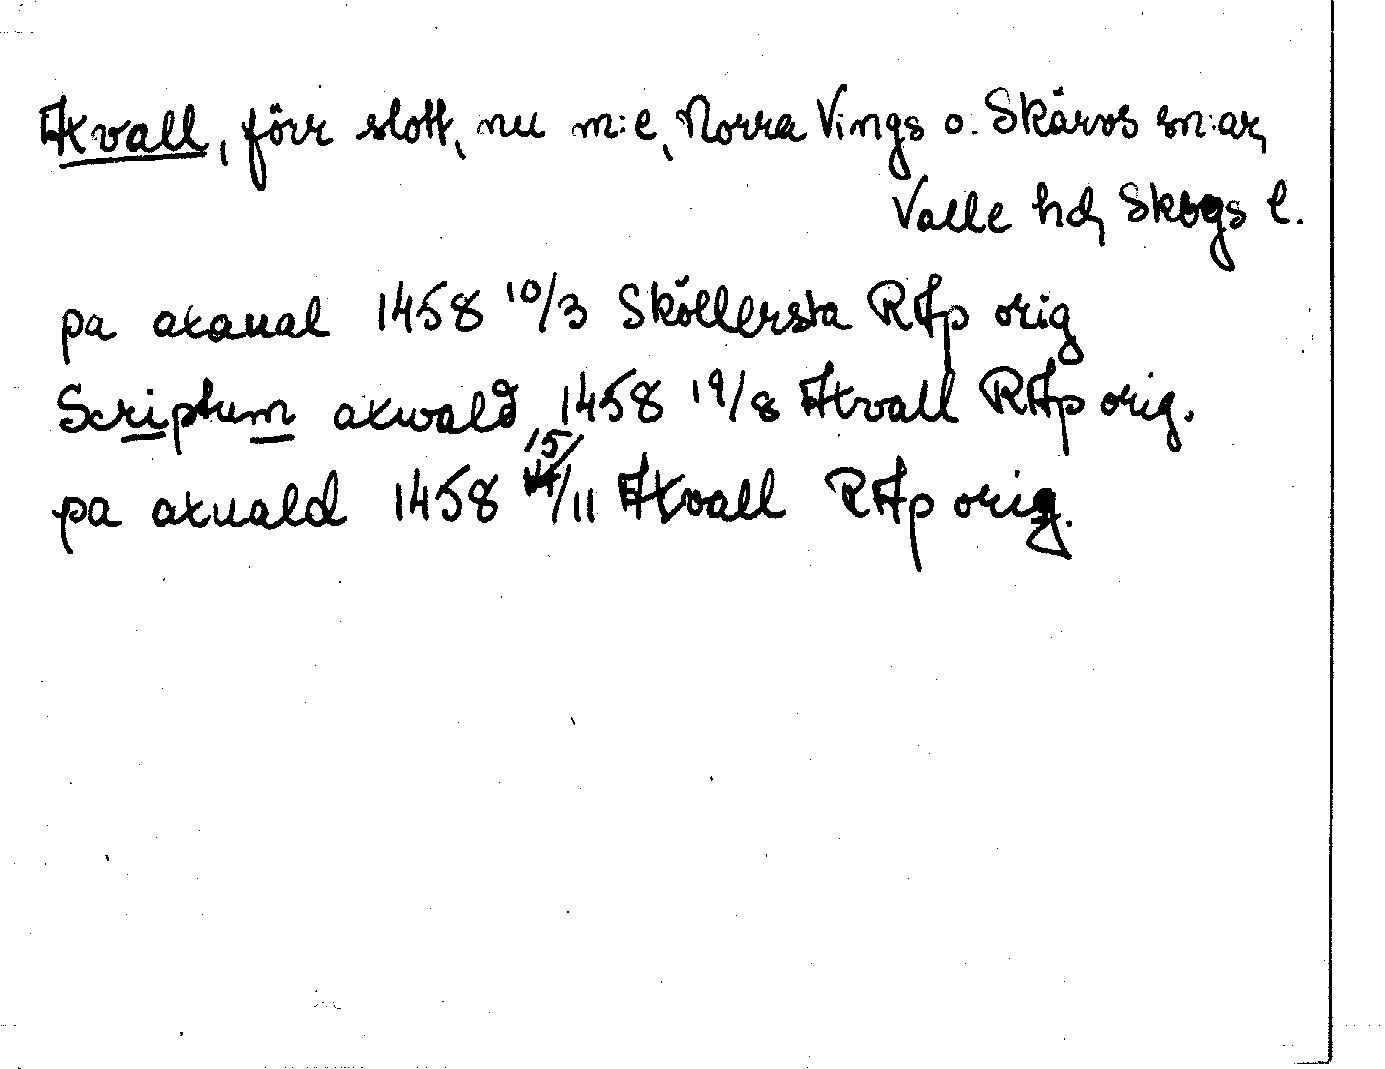 Axvall, förr slott, nu m:e, Norra Vings o. Skärvs sn:ar,
Valle hd, Skbgs l.
pa axaual 1458 10/3 Sköllersta RAp orig
Scriptum axwald, 1458 19/8 Axvall RAp orig.
pa axuald 1458 15/11 Axvall RAp orig.